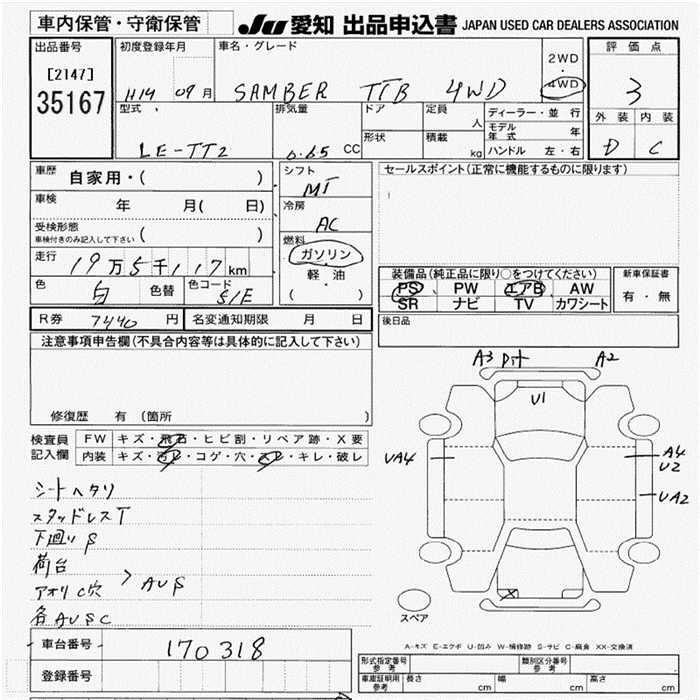 車内保管・守衛保管
JU 愛知 出品申込書 JAPAN USED CAR DEALERS ASSOCIATION
出品番号
[2147]
35167
初度登録年月
H14 09月
車名・グレード
SAMBER TTB 4WD
2WD
・
4WD
評価点
3
外装 内装
D C
型式
LE-TT2
排気量
0.65 CC
ドア
形状
定員
人
積載
kg
ディーラー・並行
モデル年式 年
ハンドル 左・右
車歴 自家用・( )
車検 年 月( 日)
受検形態
車検付きのみ記入して下さい ( )
走行 19万5千117km
色 白 色替 色コード 51E
シフト
MT
冷房
AC
燃料
ガソリン
軽・油
( )
セールスポイント(正常に機能するものに限ります)
装備品(純正品に限り○をつけてください)
PS PW エアB AW
SR ナビ TV カワシート
新車保証書
有・無
R券 7440 円 名変通知期限 月 日
後日品
注意事項申告欄(不具合内容等は具体的に記入して下さい)
修復歴 有 (箇所 )
検査員記入欄
FW キズ・飛石・ヒビ割・リペア跡・X要
内装 キズ・汚レ・コゲ・穴・スレ・キレ・破レ
シートヘタリ
スタッドレスT
下廻りS
荷台
アオリC穴 > AUS
各AUSC
A3 A2
U1
UA4
A4
U2
UA2
X
スペア
A-キズ E-エクボ U-凹み W-補修跡 S-サビ C-腐食 XX-交換済
車台番号 170318
登録番号
形式指定番号
参考
類別区分番号
参考
車庫証明用
参考
長さ cm 幅 cm 高さ cm